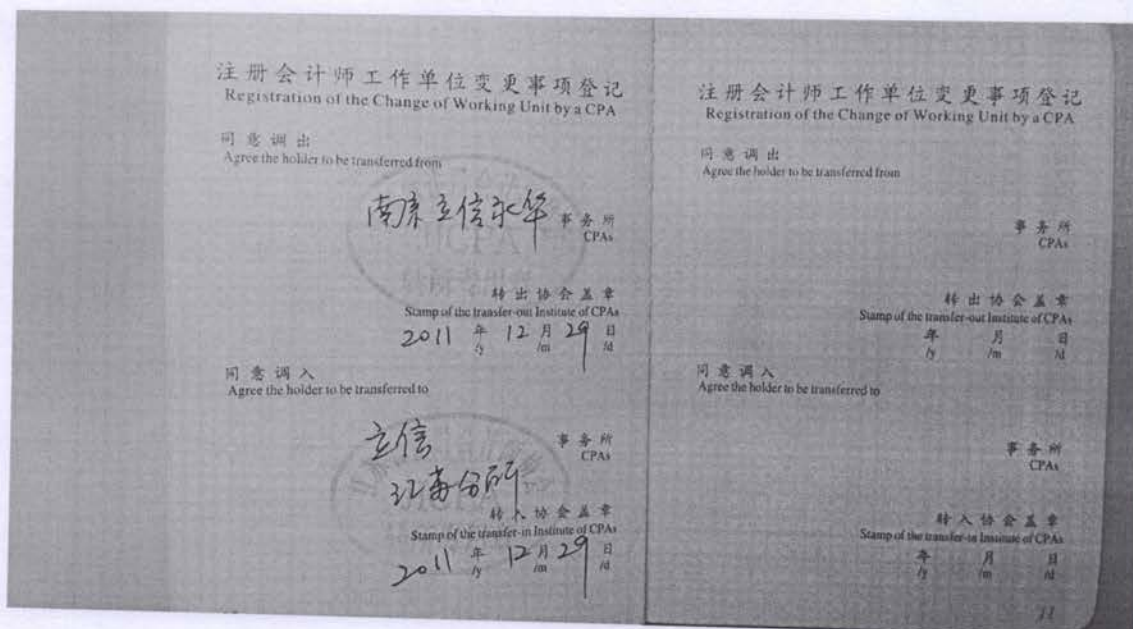 注册会计师工作单位变更事项登记
Registration of the Change of Working Unit by a CPA
同意调出
Agree the holder to be transferred from
南京立信永华 事务所
CPAs
转出协会盖章
Stamp of the transfer-out Institute of CPAs
2011 年 12 月 29 日
/y /m /d
同意调入
Agree the holder to be transferred to
立信 事务所
CPAs
江苏分所
转入协会盖章
Stamp of the transfer-in Institute of CPAs
2011 年 12 月 29 日
/y /m /d
注册会计师工作单位变更事项登记
Registration of the Change of Working Unit by a CPA
同意调出
Agree the holder to be transferred from
事务所
CPAs
转出协会盖章
Stamp of the transfer-out Institute of CPAs
年 月 日
/y /m /d
同意调入
Agree the holder to be transferred to
事务所
CPAs
转入协会盖章
Stamp of the transfer-in Institute of CPAs
年 月 日
/y /m /d
11